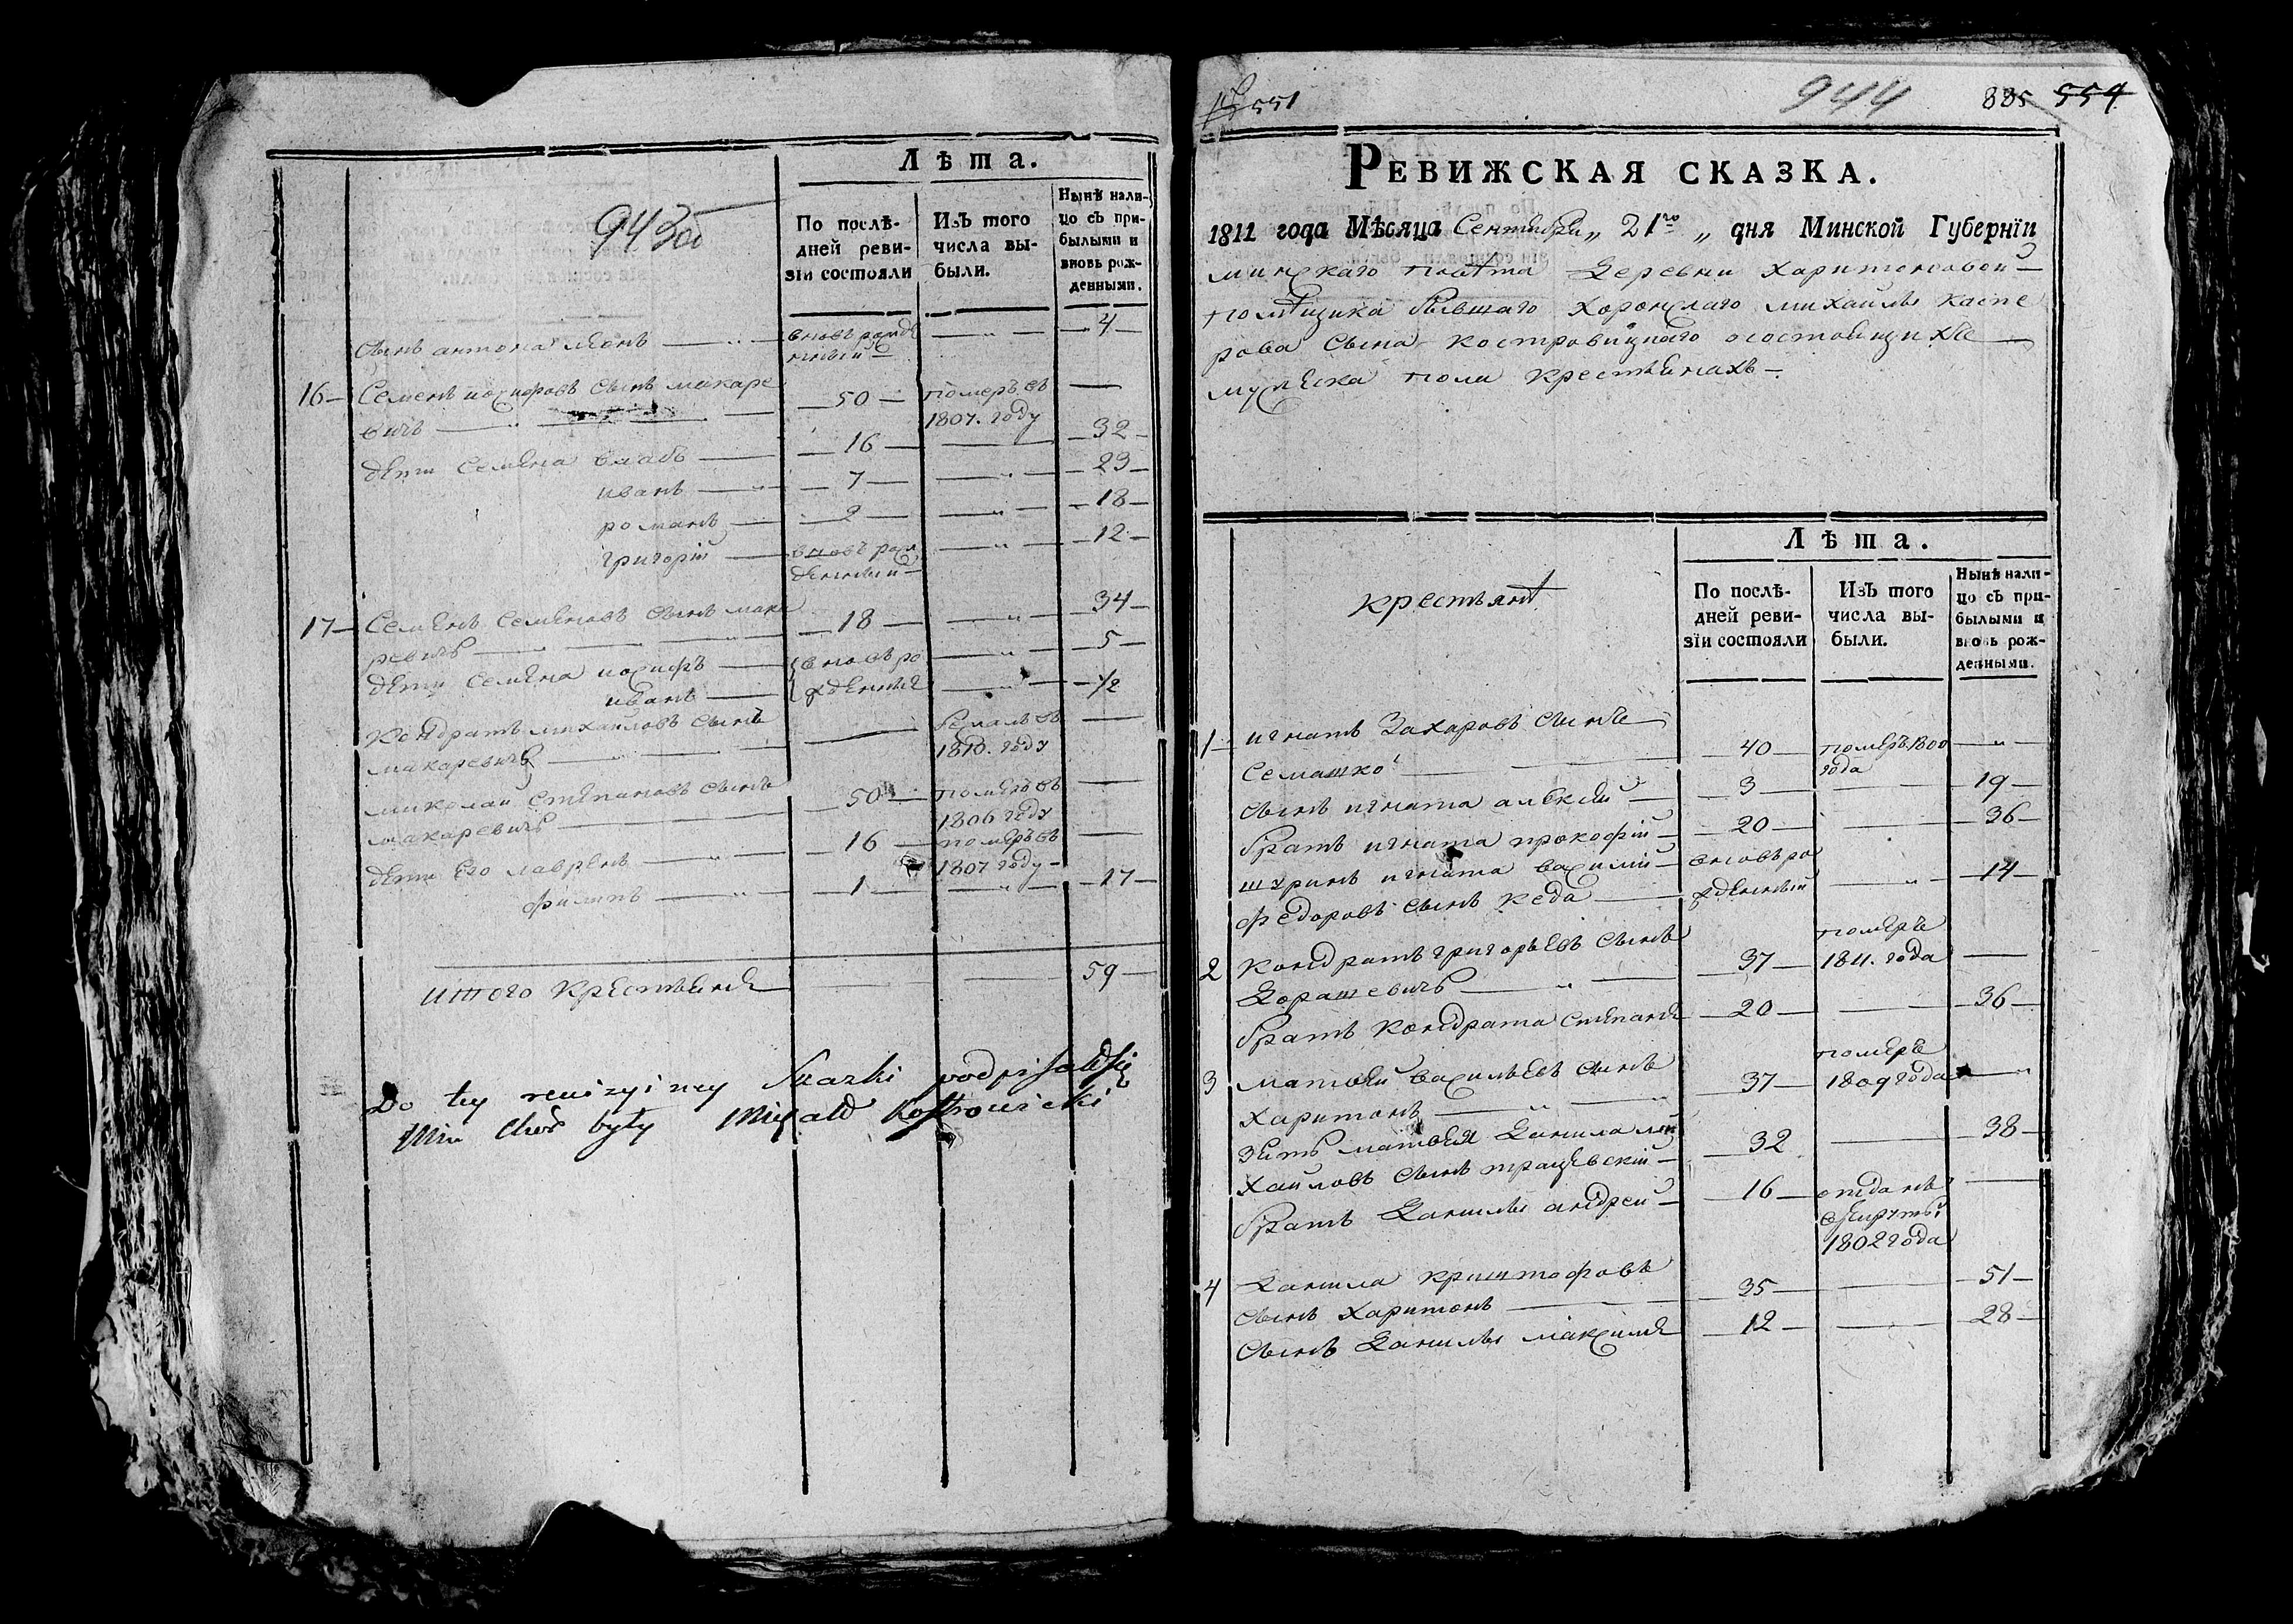 943об
Лѣта.
По послѣ-
дней реви-
зїи состояли
Изъ того
числа вы-
были.
Нынѣ нали-
цо съ при-
былыми и
вновь рож-
денными.
сынъ антона леонъ вновь рожде 4
нный
16 Семенъ иосифовъ сынъ макаре 50 померъ въ
вичъ 1807. году
дети Семена 16 32
иванъ 7 23
романъ 2 18
григорий вновь рож 12
денный
17 Семенъ Семеновъ сынъ мака 18 34
ревичъ
дети Семена иосифъ вновь ро 5
иванъ жденные 1/2
Кондратъ михайловъ сынъ
макаревичъ 1810. году
миколай степановъ сынъ 50 померъ въ
макаревичъ 1806 году
дети его лавренъ 16 померъ въ
1807 году
филипъ 1 17
итого крестьянъ 59
Do tey rewizyiney Skazki podpisałsię
Min Chor były Michałł Kostrowicki
551
944
885 554
Ревижская сказка.
1811 года Мѣсяца Сентября „ 21го „ дня Минской Губернїи
минскаго повѣта деревни харитоновой
помѣщика бывшаго хоронжаго михайлы каспе
рова сына костровицкаго о состоящихъ
мужеска пола крестьянахъ
Лѣта.
крестьянъ
По послѣ-
дней реви-
зїи состояли
Изъ того
числа вы-
были.
Нынѣ нали-
цо съ при-
былыми и
вновь рож-
денными.
1 игнатъ Захаровъ сынъ
Семашко 40 померъ 1800
года
сынъ игната алексей 3 19
братъ игната прокофий 20 36
шуринъ игната василий вновь ро
федоровъ сынъ кеда жденный 14
2 кондратъ григорьевъ сынъ померъ
дорашевичъ 37 1811. года
братъ кондрата степанъ 20 36
3 матвей васильевъ сынъ померъ
харитонъ 37 1809 года
зять матвея данила ми
хайловъ сынъ трацевский 32 38
братъ данилы андрей 16 отданъ
в рекруты
1802 года
4 данила криштофовъ
сынъ харитонъ 35 51
сынъ данилы максимъ 12 28